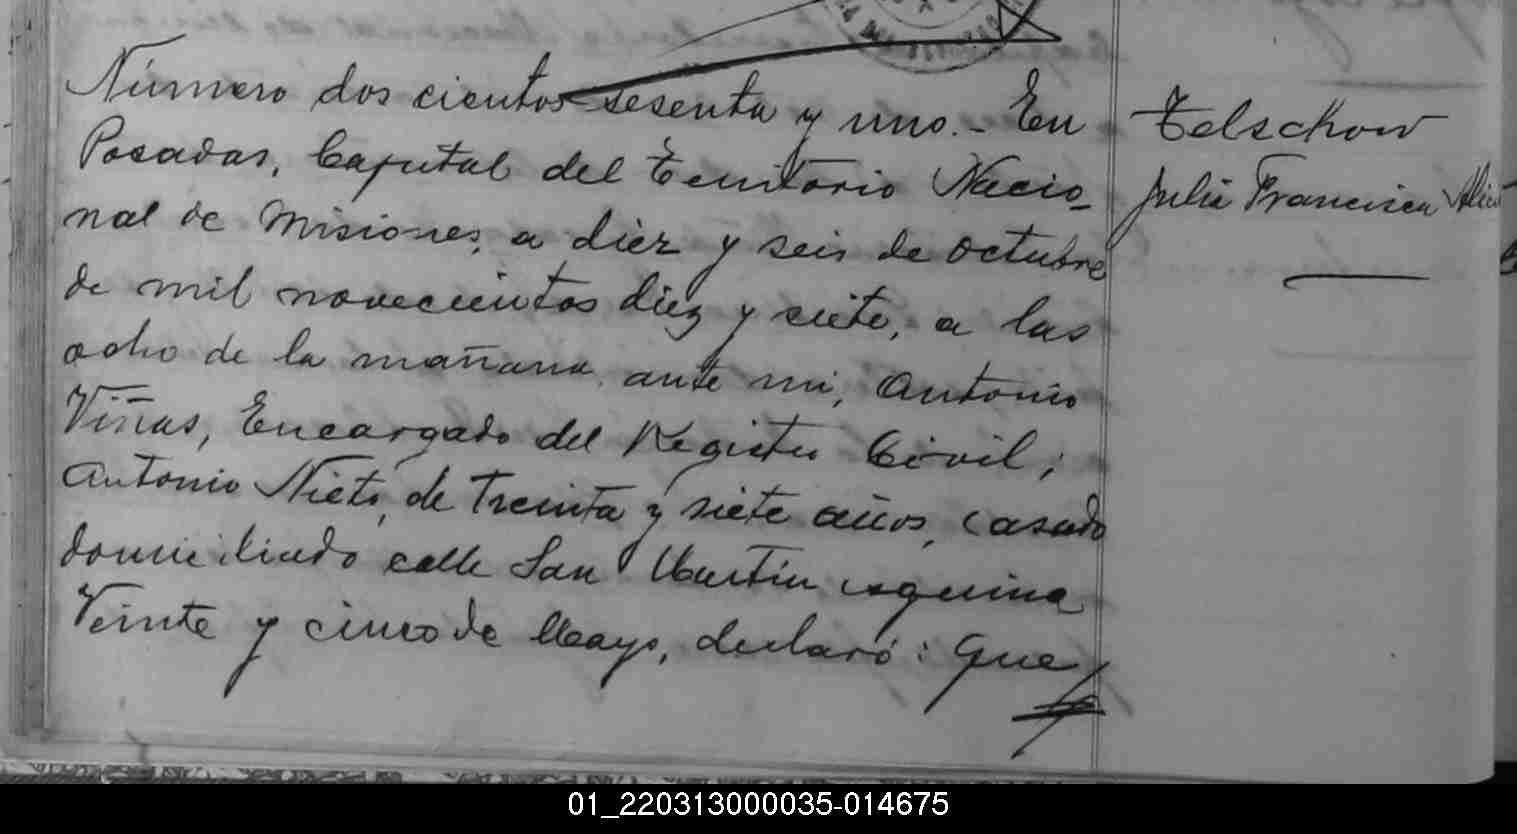 Número dos cientos sesenta y uno.- En
Posadas, Capital del Territorio Nacio-
nal de Misiones, a diez y seis de octubre
de mil novecientos diez y siete, a las
ocho de la mañana ante mi, Antonio
Viñas, Encargado del Registro Civil;
Antonio Nieto, de treinta y siete años, casado
domiciliado calle San Martín esquina
Veinte y cinco de Mayo, declaró: Que
Telschow
Julia Francisca
01_220313000035-014675